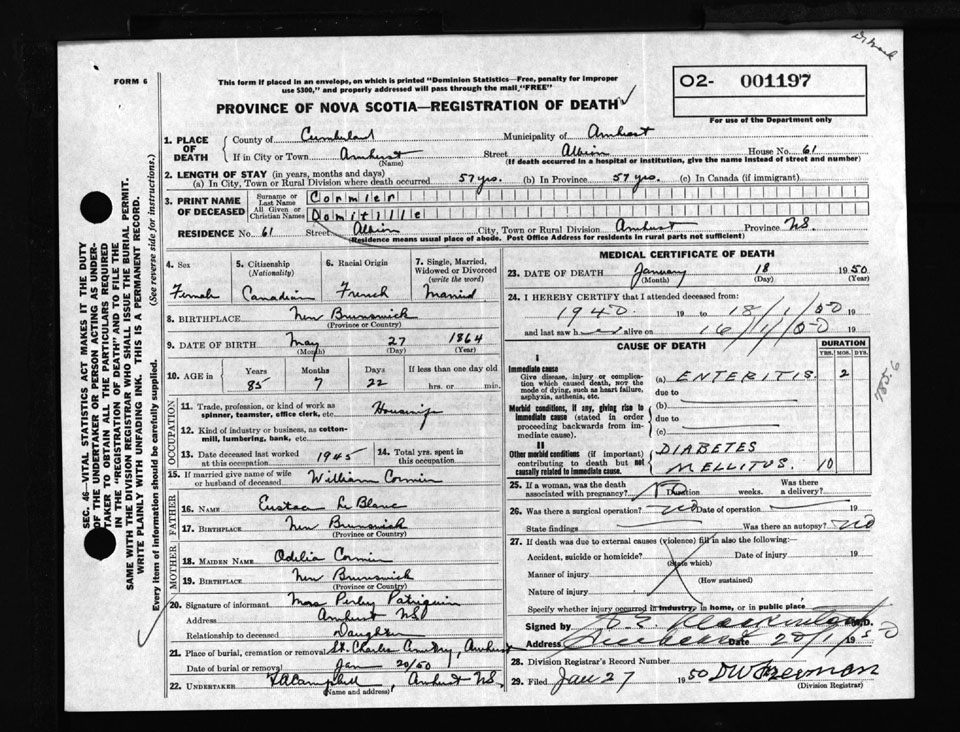 FORM 6
This form if placed in an envelope, on which is printed "Dominion Statistics—Free, penalty for improper
use $300," and properly addressed will pass through the mail "FREE"
PROVINCE OF NOVA SCOTIA—REGISTRATION OF DEATH
O2- 001197
For use of the Department only
SEC. 46—VITAL STATISTICS ACT MAKES IT THE DUTY
OF THE UNDERTAKER OR PERSON ACTING AS UNDER-
TAKER TO OBTAIN ALL THE PARTICULARS REQUIRED
IN THE "REGISTRATION OF DEATH" AND TO FILE THE
SAME WITH THE DIVISION REGISTRAR WHO SHALL ISSUE THE BURIAL PERMIT.
WRITE PLAINLY WITH UNFADING INK. THIS IS A PERMANENT RECORD.
Every item of information should be carefully supplied. (See reverse side for instructions.)
1. PLACE OF DEATH
County of Cumberland Municipality of Amherst
If in City or Town Amherst Street Albion House No. 61
(Name) (If death occurred in a hospital or institution, give the name instead of street and number)
2. LENGTH OF STAY (in years, months and days)
(a) In City, Town or Rural Division where death occurred 57 yrs. (b) In Province 57 yrs. (c) In Canada (if immigrant)
3. PRINT NAME OF DECEASED
Surname or Last Name Cormier
All Given or Christian Names Domitille
RESIDENCE No. 61 Street Albion City, Town or Rural Division Amherst Province N.S.
(Residence means usual place of abode. Post Office Address for residents in rural parts not sufficient)
4. Sex Female
5. Citizenship (Nationality) Canadian
6. Racial Origin French
7. Single, Married, Widowed or Divorced (write the word) Married
8. BIRTHPLACE New Brunswick
(Province or Country)
9. DATE OF BIRTH May 27 1864
(Month) (Day) (Year)
10. AGE in Years Months Days If less than one day old
85 7 22 hrs. or min.
OCCUPATION
11. Trade, profession, or kind of work as spinner, teamster, office clerk, etc. Housewife
12. Kind of industry or business, as cotton-mill, lumbering, bank, etc.
13. Date deceased last worked at this occupation 1945
14. Total yrs. spent in this occupation
15. If married give name of wife or husband of deceased William Cormier
FATHER
16. Name Eustac Le Blanc
17. Birthplace New Brunswick
(Province or Country)
MOTHER
18. MAIDEN NAME Odelia Cormier
19. BIRTHPLACE New Brunswick
(Province or Country)
20. Signature of informant Mrs Perley Patriquin
Address Amherst N.S.
Relationship to deceased Daughter
21. Place of burial, cremation or removal St. Charles Cemetery, Amherst
Date of burial or removal Jan 20/50
22. UNDERTAKER Campbell, Amherst N.S.
(Name and address)
MEDICAL CERTIFICATE OF DEATH
23. DATE OF DEATH January 18 1950
(Month) (Day) (Year)
24. I HEREBY CERTIFY that I attended deceased from:
1940 19 to 18/1/50 19
and last saw h alive on 16/1/50 19
CAUSE OF DEATH
DURATION
YRS. MOS. DYS.
I
Immediate cause
Give disease, injury or complica-
tion which caused death, not the
mode of dying, such as heart failure,
asphyxia, asthenia, etc.
(a) ENTERITIS. 2
due to
Morbid conditions, if any, giving rise to
immediate cause (stated in order
proceeding backwards from im-
mediate cause).
(b)
due to
(c)
II
Other morbid conditions (if important)
contributing to death but not
causally related to immediate cause.
DIABETES
MELLITUS. 10
25. If a woman, was the death associated with pregnancy? NO Duration weeks. Was there a delivery?
26. Was there a surgical operation? NO Date of operation 19
State findings Was there an autopsy? NO
27. If death was due to external causes (violence) fill in also the following:—
Accident, suicide or homicide? Date of injury 19
(State which)
Manner of injury
(How sustained)
Nature of injury
Specify whether injury occurred in industry, in home, or in public place
Signed by M.D.
Address Amherst Date 20/1/1950
28. Division Registrar's Record Number
29. Filed Jan 27 1950 DW Freeman
(Division Registrar)